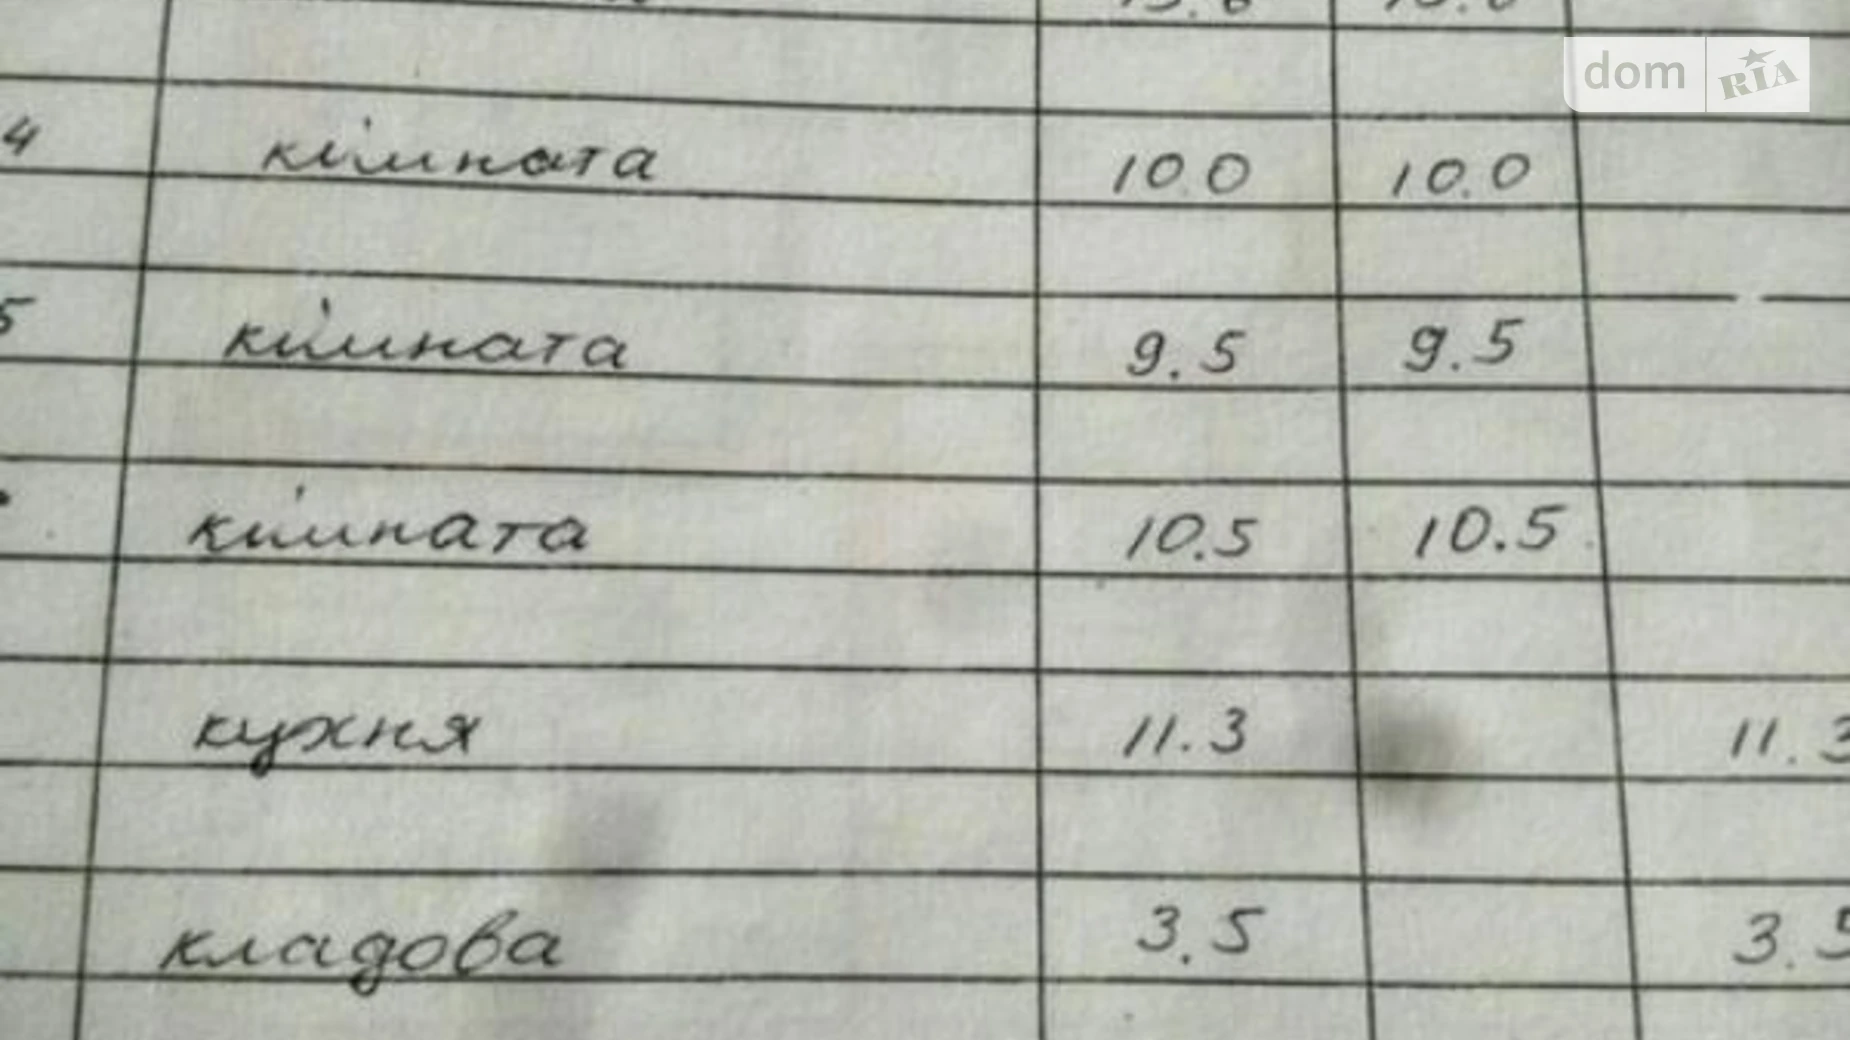 dom RIA
4 кімната 10.0 10.0
5 кімната 9.5 9.5
кімната 10.5 10.5
кухня 11.3 11.3
кладова 3.5 3.5